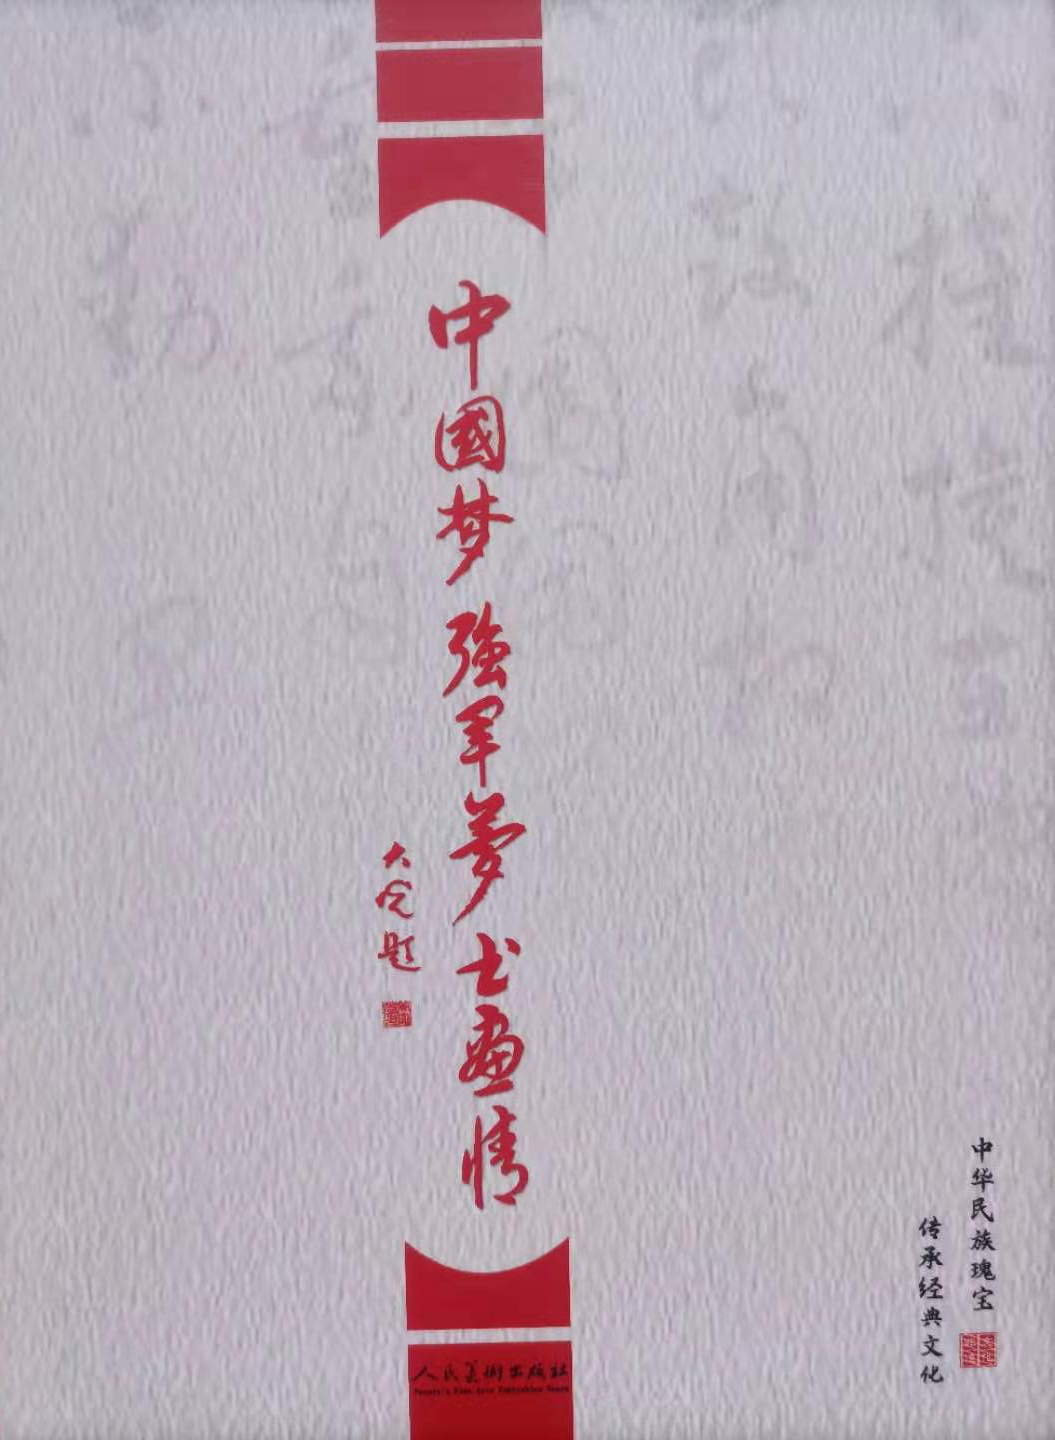 中國梦 強軍夢 书畫情
大悦题
中华民族瑰宝
传承经典文化
人民美術出版社
People's Fine Arts Publishing House